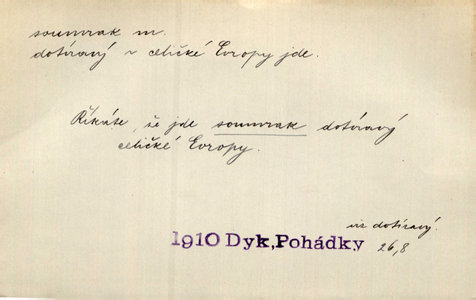 soumrak m.
dotíravý ~ celičké Evropy jde.
Říkáte, že jde soumrak dotíravý
celičké Evropy.
viz dotíravý.
1910 Dyk, Pohádky
26,8